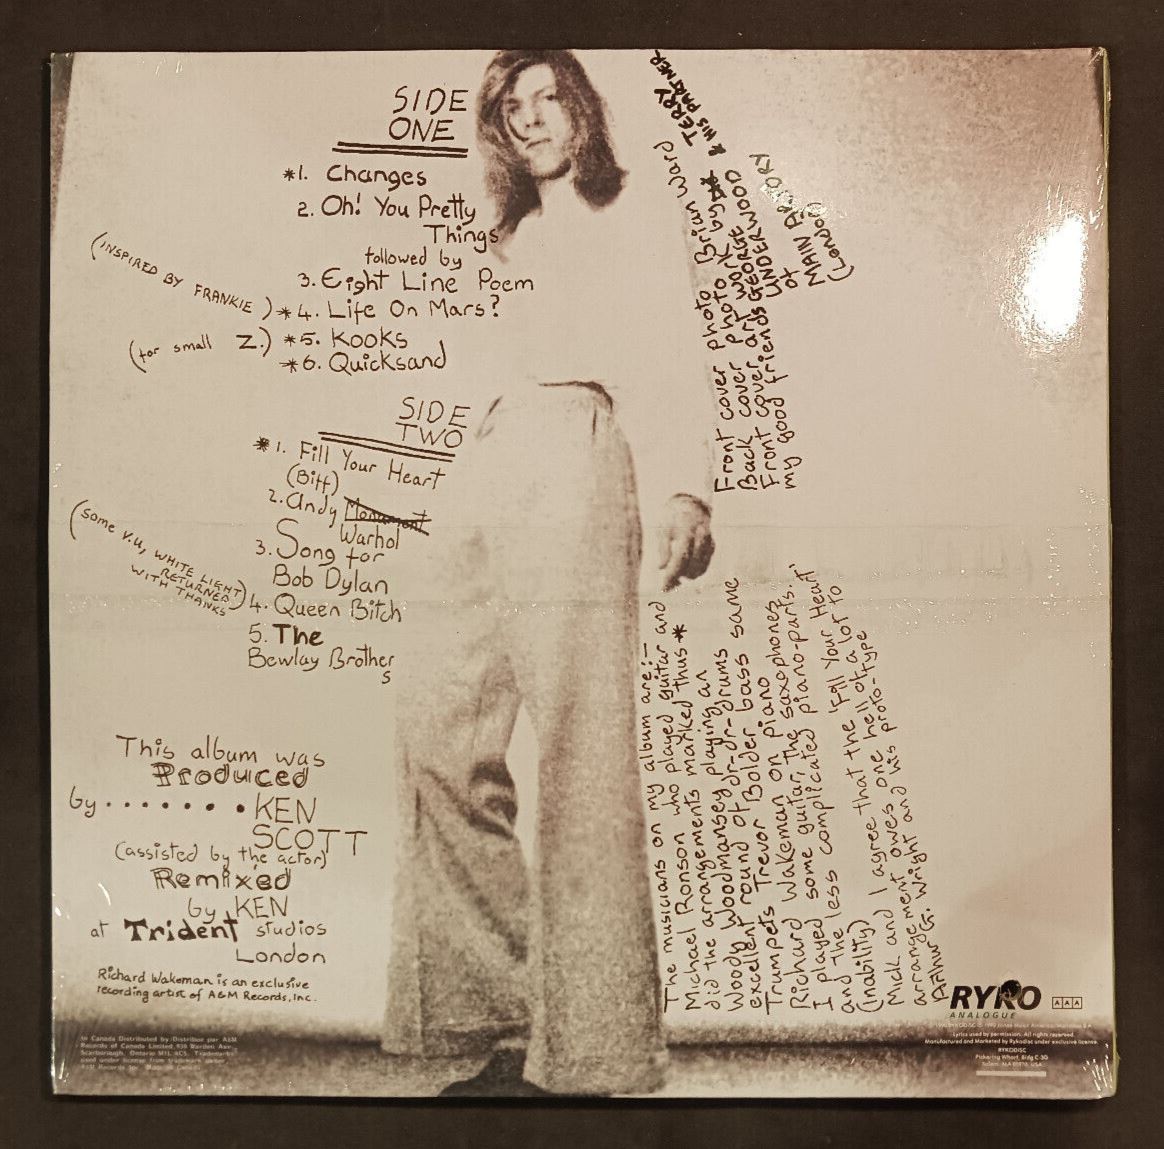 SIDE
ONE
*1. Changes
2. Oh! You Pretty
Things
followed by
3. Eight Line Poem
(INSPIRED BY FRANKIE) *4. Life On Mars?
(for small Z.) *5. Kooks
*6. Quicksand
SIDE
TWO
* 1. Fill Your Heart
(Biff)
2. Andy Monument
Warhol
3. Song for
Bob Dylan
(some V.U, WHITE LIGHT
RETURNED
WITH THANKS)
4. Queen Bitch
5. The
Bewlay Brother
s
This album was
Produced
by . . . . . . . KEN
SCOTT
(assisted by the actor)
Remixed
by KEN
at Trident studios
London
Richard Wakeman is an exclusive
recording artist of A&M Records, Inc.
In Canada Distributed by/Distribue par A&M
Records of Canada Limited, 939 Warden Ave.,
Scarborough, Ontario M1L 4C5. Trademarks
used under license from trademark owner
A&M Records Inc.
Front cover photo Brian Ward
Back cover photo K
Front cover art work by TERRY & HIS PARTNER
my good friends GEORGE UNDERWOOD
at MAIN ARTERY
(London)
The musicians on my album are:—
Michael Ronson who played guitar and
did the arrangements marked thus *
Woody Woodmansey playing an
excellent round of dr-dr-drums same
Trumpets Trevor Bolder bass
Richard Wakeman on piano
I played some guitar, the saxophones
and the less complicated piano-parts.
(inability) I agree that the 'Fill Your Heart'
Mick and
arrangement owes one hell of a lot to
Arthur G. Wright and his proto-type
RYKO
ANALOGUE
AAA
Lyrics used by permission. All rights reserved.
Manufactured and Marketed by Rykodisc under exclusive license.
RYKODISC
Pickering Wharf, Bldg C-3G
Salem, MA 01970, USA